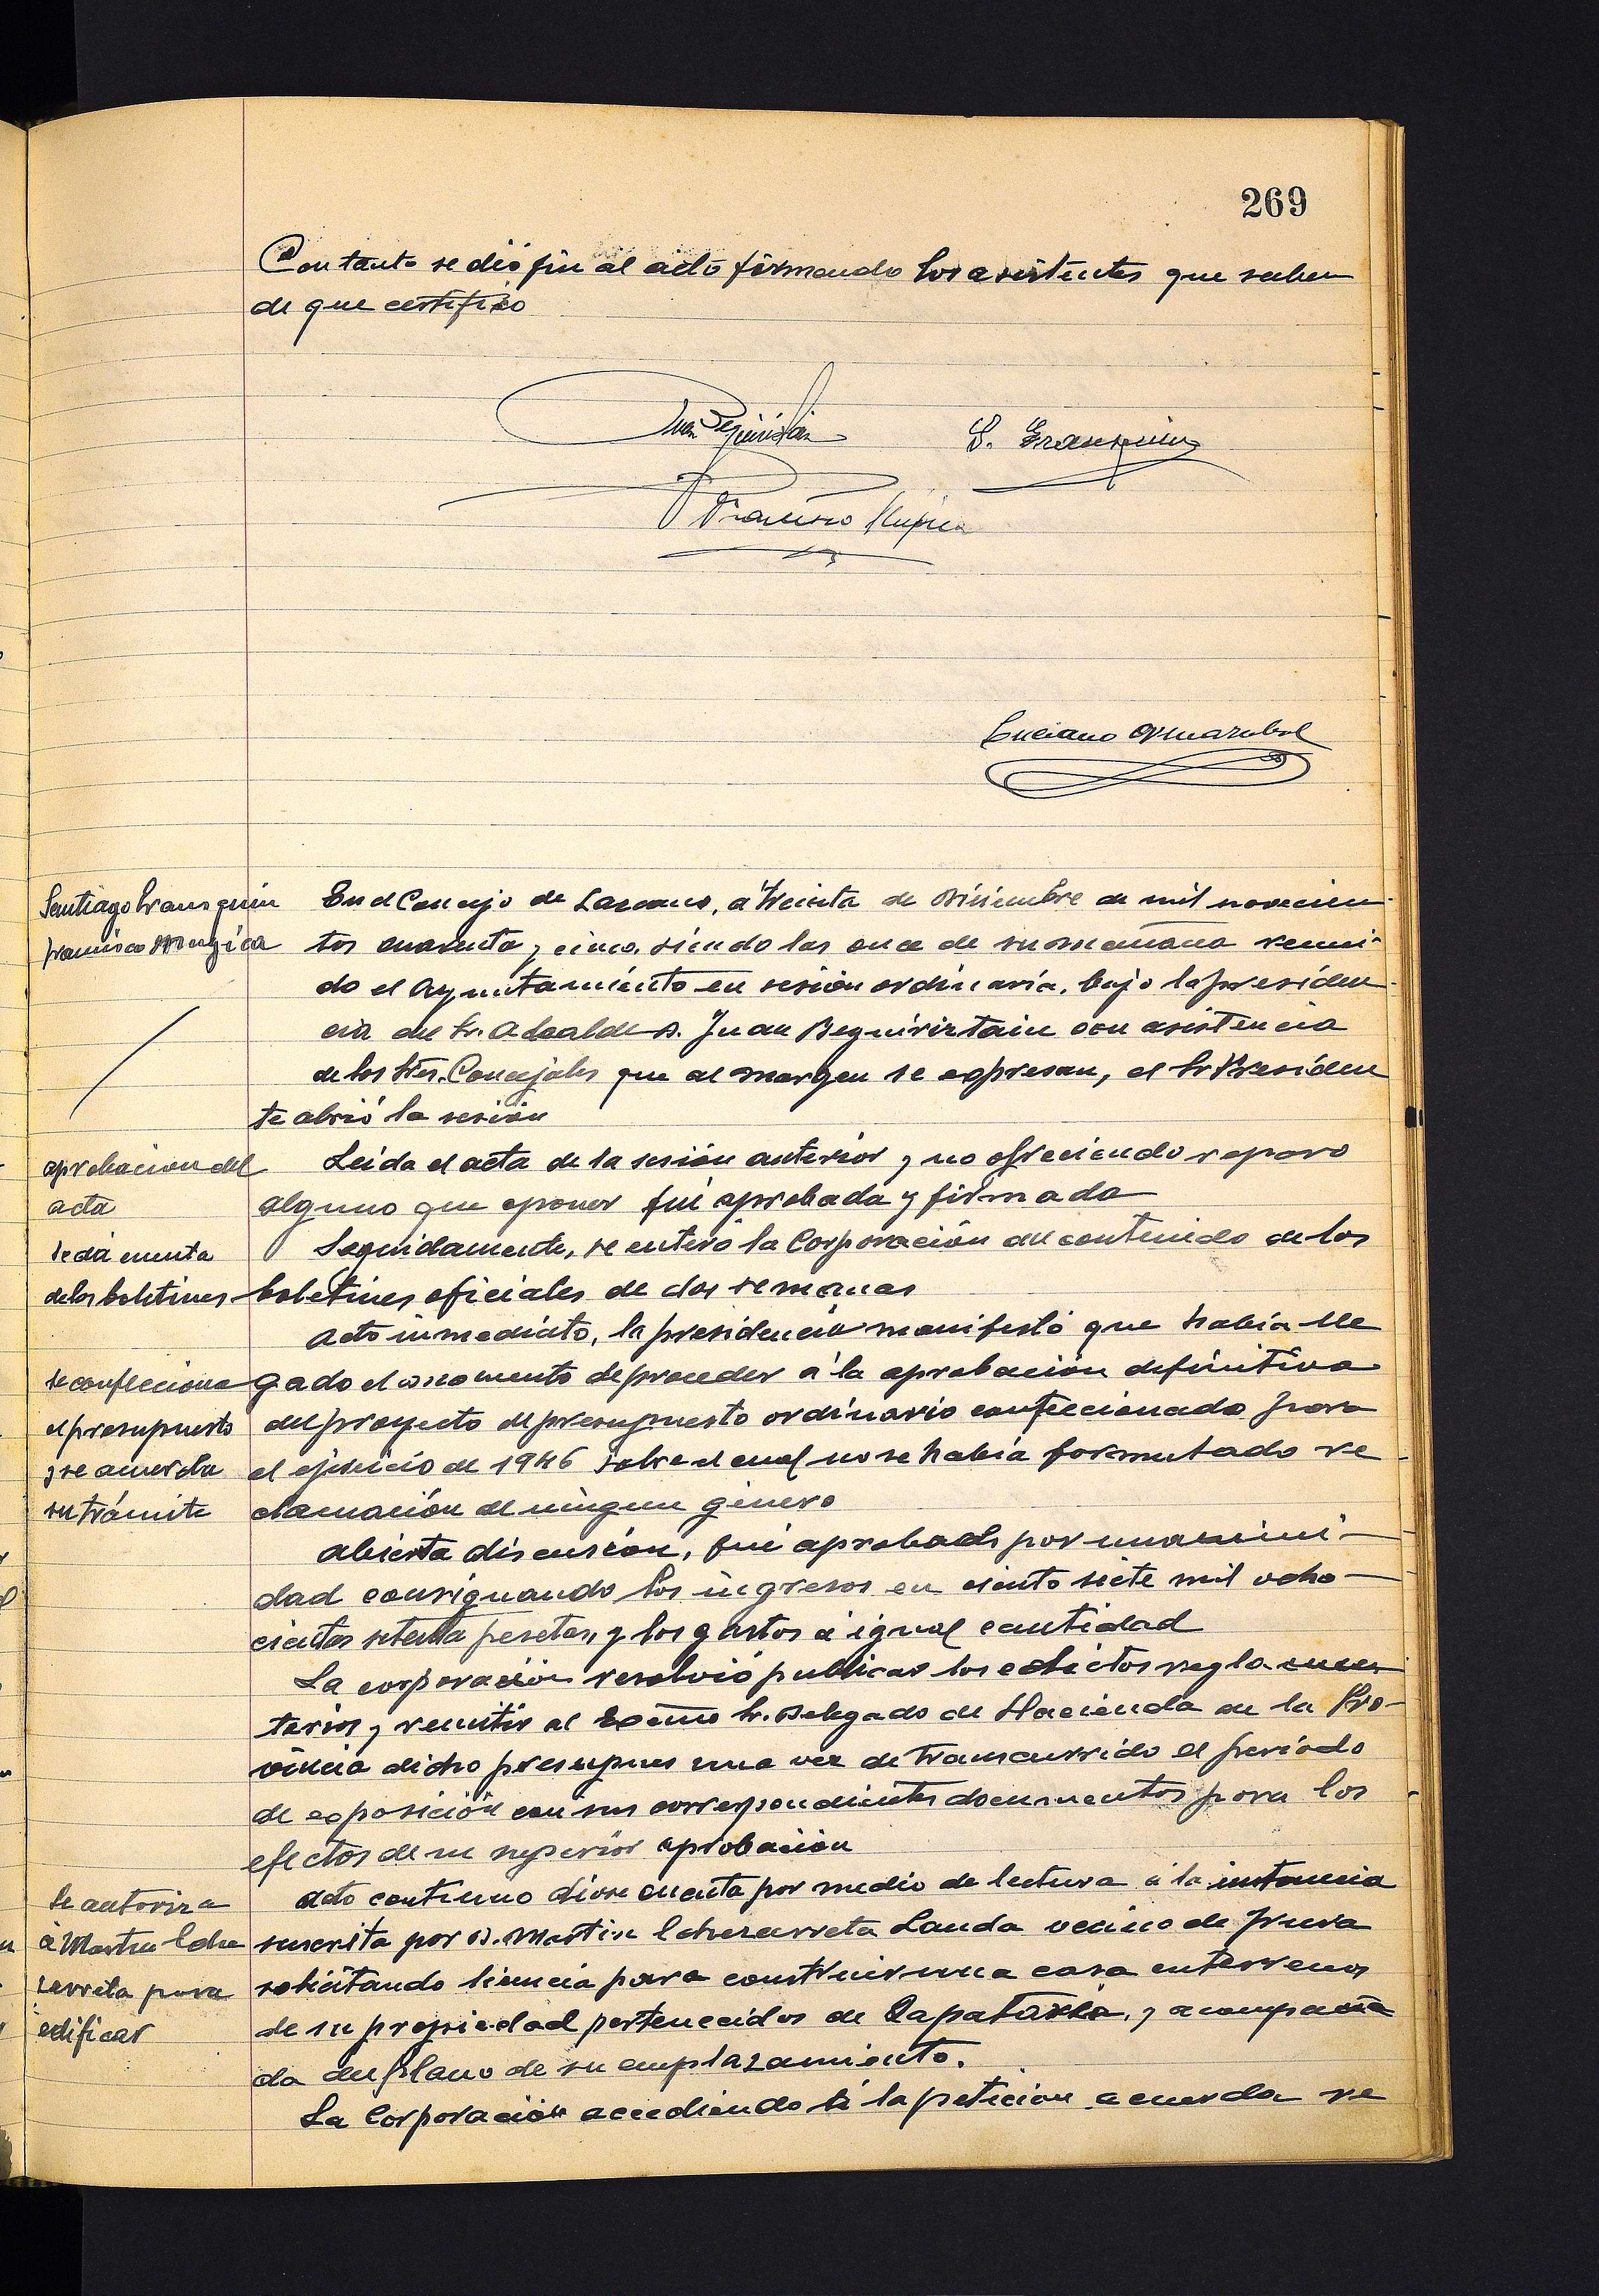 269
Con tanto se dió fin al acto firmando los asistentes que saben
de que certifico
Juan Beguiristain
S. Eransquin
Francisco Mugica
Luciano
Santiago Eransquin
Francisco Mugica
En el Concejo de Lazcano, a treinta de Diciembre de mil novecien-
tos cuarenta y cinco, siendo las once de su mañana reuni-
do el Ayuntamiento en sesión ordinaria, bajo la presiden-
cia del Sr. Alcalde D. Juan Beguiristain con asistencia
de los Sres. Concejales que al margen se expresan, el Sr Presiden
te abrió la sesión
aprobacion del
acta
Leida el acta de la sesión anterior y no ofreciendo reparo
alguno que oponer fué aprobada y firmada
se da cuenta
de los boletines
Seguidamente, se enteró la Corporación del contenido de los
boletines oficiales de dos semanas
Acto inmediato, la presidencia manifestó que había lle
se confecciona
el presupuesto
y se acuerda
su trámite
gado el momento de proceder á la aprobación definitiva
del proyecto de presupuesto ordinario confeccionado para
el ejercicio de 1946 sobre el cual no se había formulado re
clamación de ningun género
Abierta discusión, fué aprobado por unanimi-
dad consignando los ingresos en ciento siete mil ocho-
cientas setenta pesetas, y los gastos á igual cantidad
La corporación resolvió publicar los edictos reglamen
tarios y remitir al Excmo Sr. Delegado de Hacienda de la Pro-
vincia dicho presupues una vez de transcurrido el período
de exposición con sus correspondientes documentos para los
efectos de su superior aprobación
Se autoriza
á Martin Eche
zarreta para
edificar
Acto continuo diose cuenta por medio de lectura á la instancia
suscrita por D. Martin Echezarreta Landa vecino de
solicitando licencia para construir una casa en terrenos
de su propiedad pertenecidos de Zapatari, y acompaña
da del plano de su emplazamiento.
La Corporación accediendo á la petición acuerda se